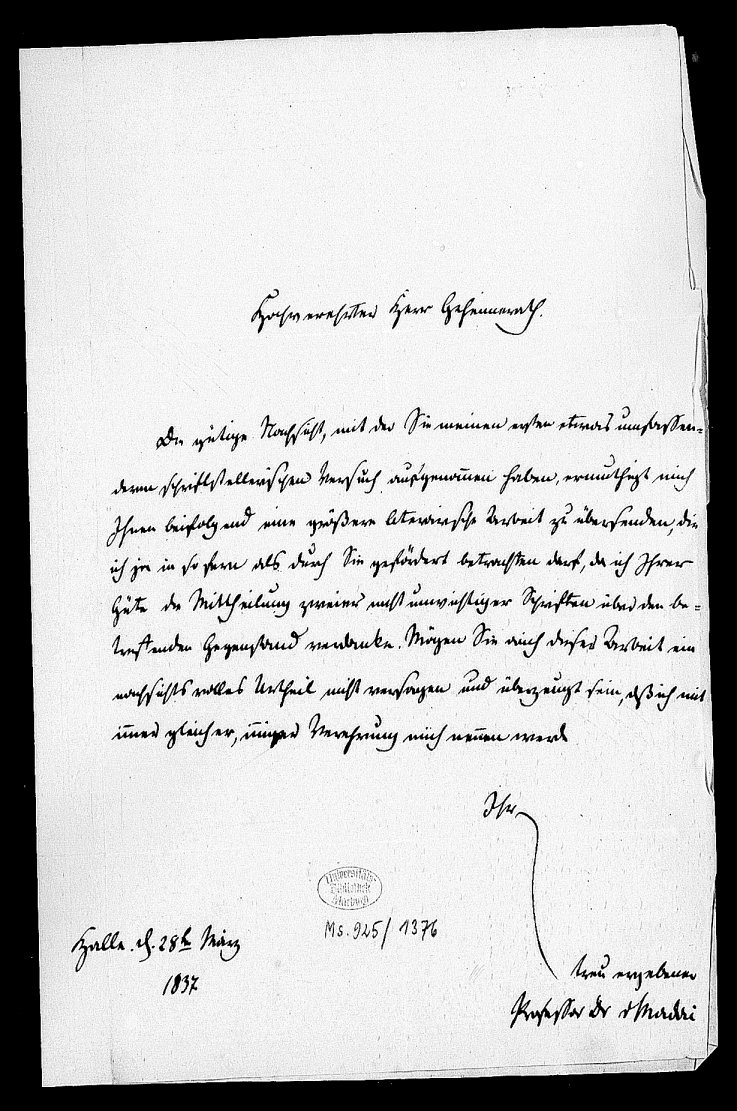 Hochverehrter Herr Geheimerath.
Die gütige Nachsicht, mit der Sie meinen ersten etwas umfassen=
deren schriftstellerischen Versuch aufgenommen haben, ermuthigt mich
Ihnen beifolgend eine größere literarische Arbeit zu übersenden, die
ich ja in so fern als durch Sie gefördert betrachten darf, da ich Ihrer
Güte die Mittheilung zweier nicht unwichtiger Schriften über den be=
treffenden Gegenstand verdanke. Mögen Sie auch dieser Arbeit ein
nachsichtsvolles Urtheil nicht versagen und überzeugt sein, daß ich mit
immer gleicher, inniger Verehrung mich nennen werde
Ihr
Universitäts-
Bibliothek
Marburg
Ms. 925/1376
Halle. d. 28t März
1837
treu ergebener
Professor Dr vMadai